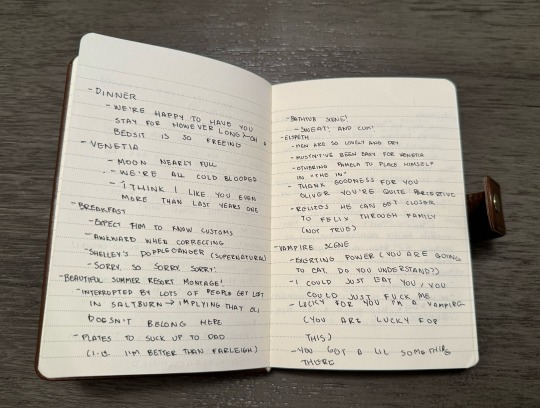 - DINNER
- WE'RE HAPPY TO HAVE YOU
STAY FOR HOWEVER LONG → OH A
BEDSIT IS SO FREEING
- VENETIA
- MOON NEARLY FULL
- WE'RE ALL COLD BLOODED
- I THINK I LIKE YOU EVEN
MORE THAN LAST YEARS ONE
- BREAKFAST
- EXPECT HIM TO KNOW CUSTOMS
- AWKWARD WHEN CORRECTING
- SHELLEY'S DOPPLEGANGER (SUPERNATURAL)
- SORRY, SO SORRY, SORRY!
- BEAUTIFUL SUMMER RESORT MONTAGE!
- INTERRUPTED BY LOTS OF PEOPLE GET LOST
IN SALTBURN → IMPLYING THAT OLI
DOESN'T BELONG HERE
- PLATES TO SUCK UP TO DAD
(I.E. I'M BETTER THAN FARLEIGH)
- BATHTUB SCENE!
- SWEAT! AND CUM!
- ELSPETH
- MEN ARE SO LOVELY AND DRY
- MUSTN'T'VE BEEN EASY FOR VENETIA
- OTHERING PAMELA TO PLACE HIMSELF
IN "THE IN"
- THANK GOODNESS FOR YOU
OLIVER YOU'RE QUITE PERCEPTIVE
- REALIZES HE CAN GET CLOSER
TO FELIX THROUGH FAMILY
(NOT TRUE)
- VAMPIRE SCENE
- EXERTING POWER (YOU ARE GOING
TO EAT. DO YOU UNDERSTAND?)
- I COULD JUST EAT YOU / YOU
COULD JUST FUCK ME
- LUCKY FOR YOU I'M A VAMPIRE
(YOU ARE LUCKY FOR
THIS)
- YOU GOT A LIL SOMETHING
THERE